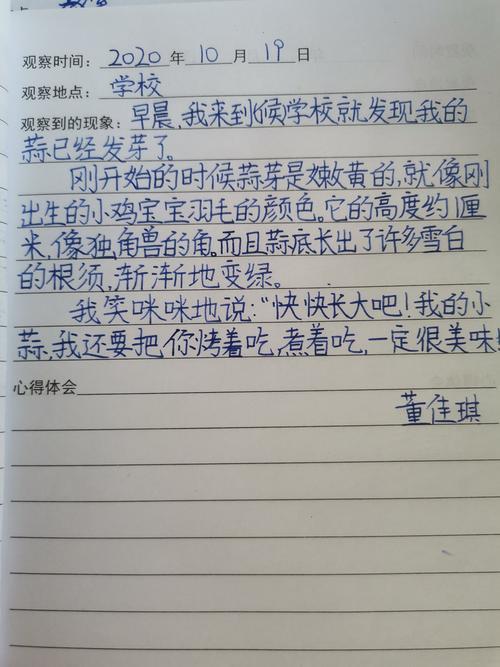 观察时间：2020年10月19日
观察地点：学校
观察到的现象：早晨，我来到候学校就发现我的
蒜已经发芽了。
刚开始的时候蒜芽是嫩黄的，就像刚
出生的小鸡宝宝羽毛的颜色。它的高度约1厘
米，像独角兽的角。而且蒜底长出了许多雪白
的根须，渐渐地变绿。
我笑咪咪地说：“快快长大吧！我的小
蒜，我还要把你烤着吃，煮着吃，一定很美味！
心得体会
董佳琪